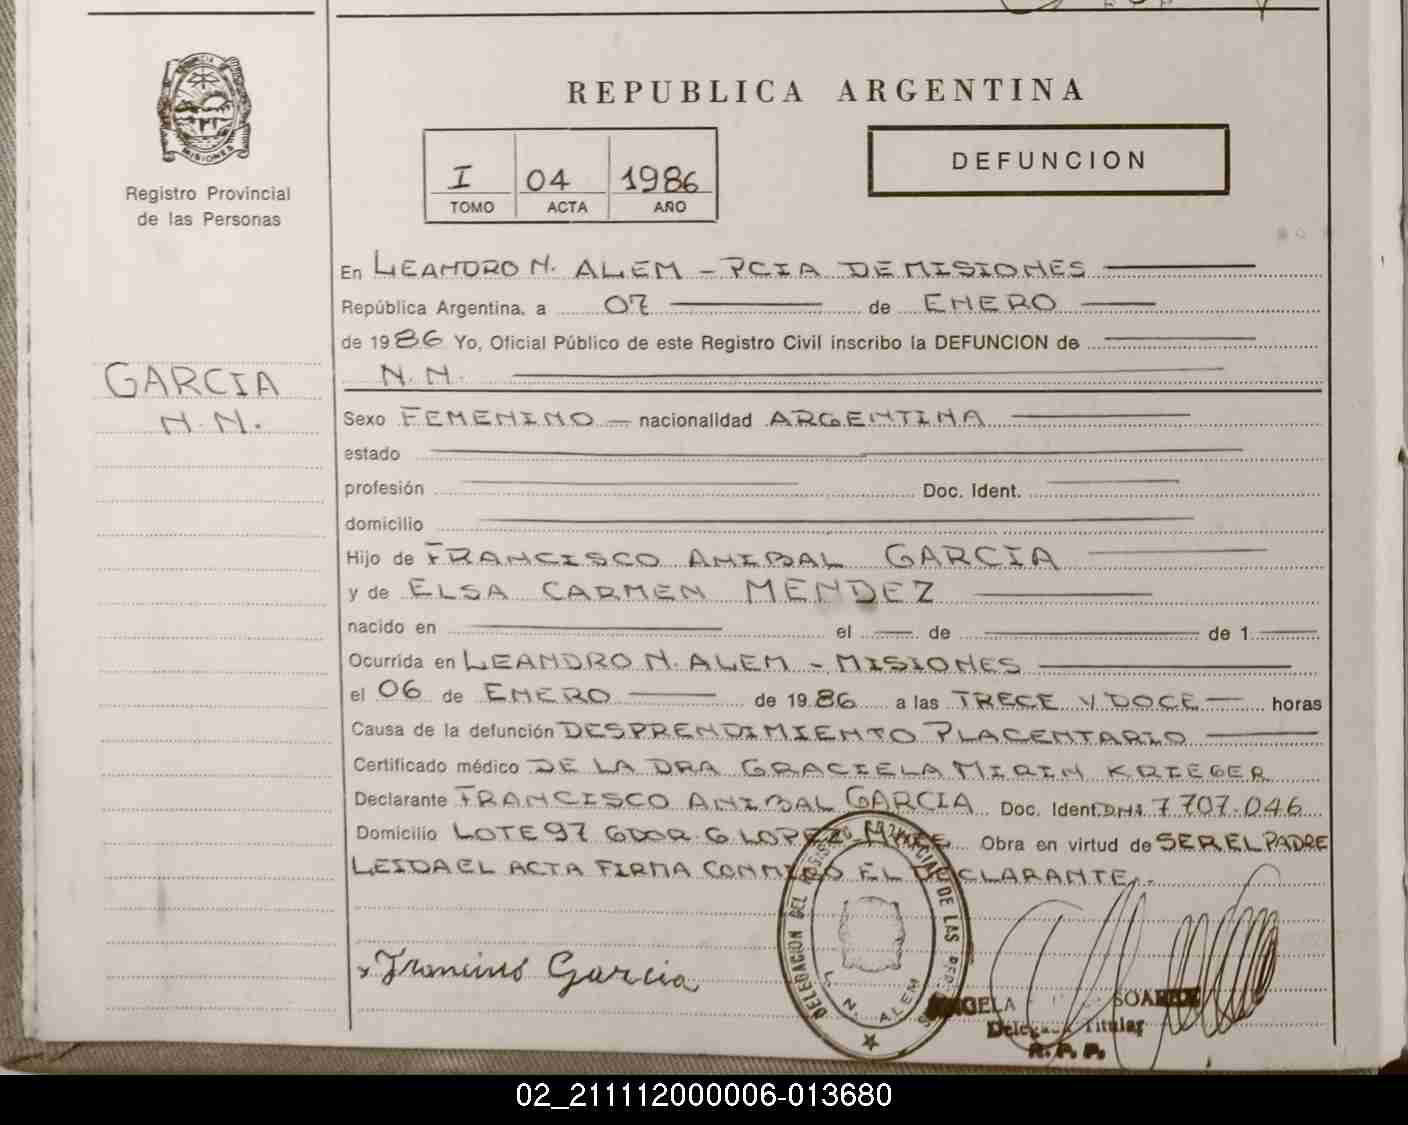 REPUBLICA ARGENTINA
MISIONES
Registro Provincial
de las Personas
I 04 1986
TOMO ACTA AÑO
DEFUNCION
En LEANDRO N. ALEM - PCIA DE MISIONES
República Argentina, a 07 de ENERO
de 1986 Yo, Oficial Público de este Registro Civil inscribo la DEFUNCION de
N.N.
GARCIA
N.N.
Sexo FEMENINO - nacionalidad ARGENTINA
estado
profesión Doc. Ident.
domicilio
Hijo de FRANCISCO ANIBAL GARCIA
y de ELSA CARMEN MENDEZ
nacido en el de de 1
Ocurrida en LEANDRO N. ALEM - MISIONES
el 06 de ENERO de 1986 a las TRECE Y DOCE horas
Causa de la defunción DESPRENDIMIENTO PLACENTARIO
Certificado médico DE LA DRA GRACIELA MIRIN KRIEGER
Declarante FRANCISCO ANIBAL GARCIA Doc. Ident. DNI 7707.046
Domicilio LOTE 97 GDOR. G LOPEZ Obra en virtud de SER EL PADRE
LEIDA EL ACTA FIRMA CONMIGO EL DECLARANTE.
DELEGACION DEL REGISTRO PROVINCIAL DE LAS PERS
L. N. ALEM
x Francisco Garcia
ANGELA SOAREZ
Delegada Titular
R. P. P.
02_211112000006-013680